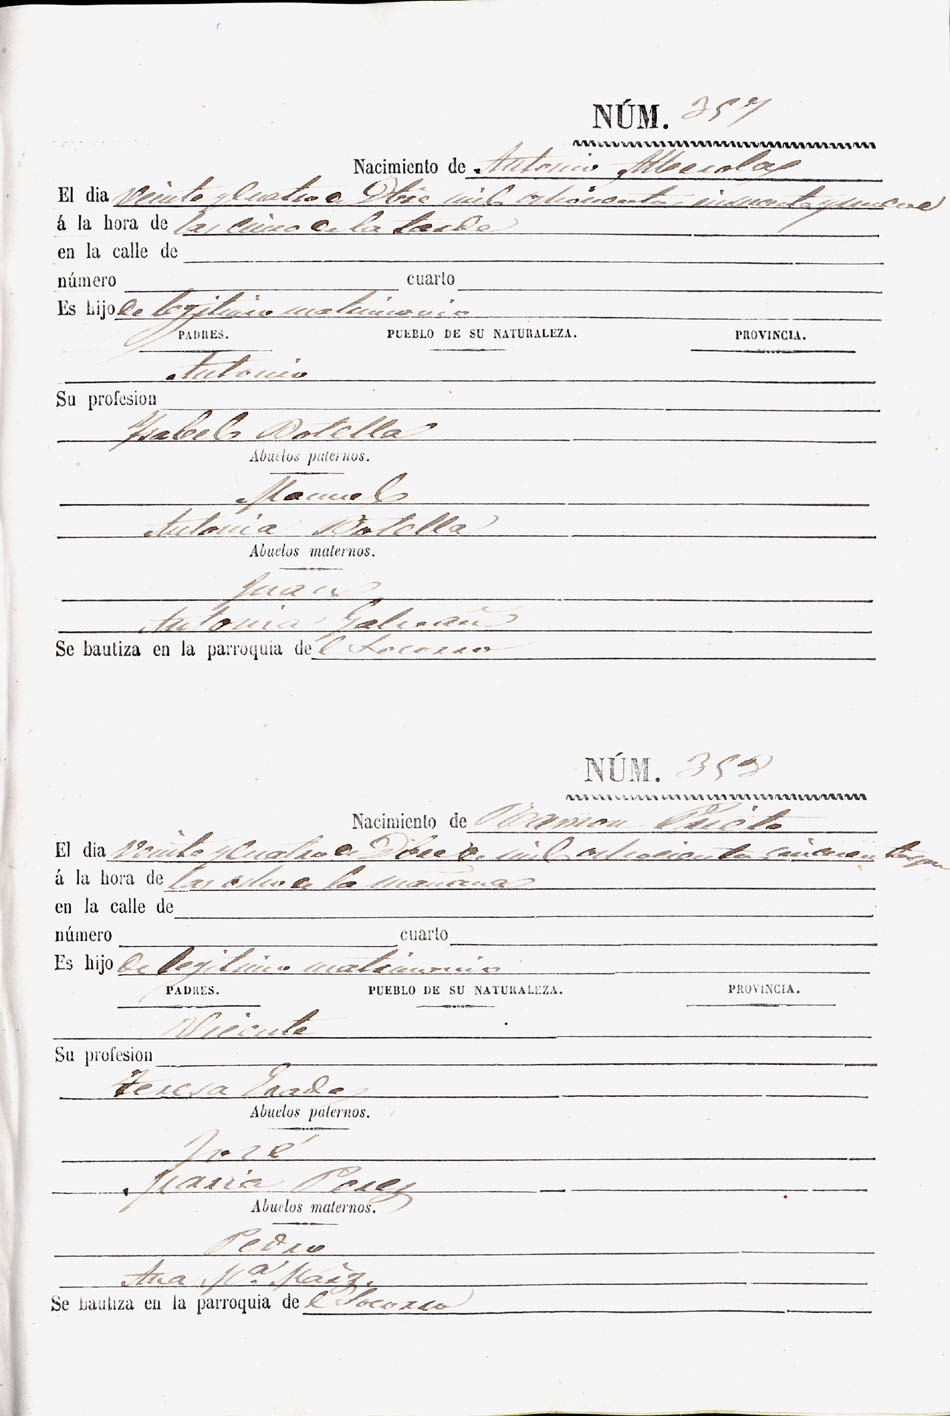 NÚM. 397
Nacimiento de Antonio
El dia veinte y cuatro de Dbre mil ochocientos cincuenta y nueve
á la hora de las cinco de la tarde
en la calle de
número cuarto
Es hijo de legitimo matrimonio
PADRES. PUEBLO DE SU NATURALEZA. PROVINCIA.
Antonio
Su profesion
Ysabel Botella
Abuelos paternos.
Manuel
Antonia Botella
Abuelos maternos.
Juan
Antonia Galvañ
Se bautiza en la parroquia de l Socorro
NÚM. 398
Nacimiento de Ramon Prieto
El dia veinte y cuatro de Dbre de mil ochocientos cincuenta
á la hora de las ocho de la mañana
en la calle de
número cuarto
Es hijo de legitimo matrimonio
PADRES. PUEBLO DE SU NATURALEZA. PROVINCIA.
Vicente
Su profesion
Teresa
Abuelos paternos.
José
Maria Perez
Abuelos maternos.
Pedro
Ana Mª
Se bautiza en la parroquia de l Socorro